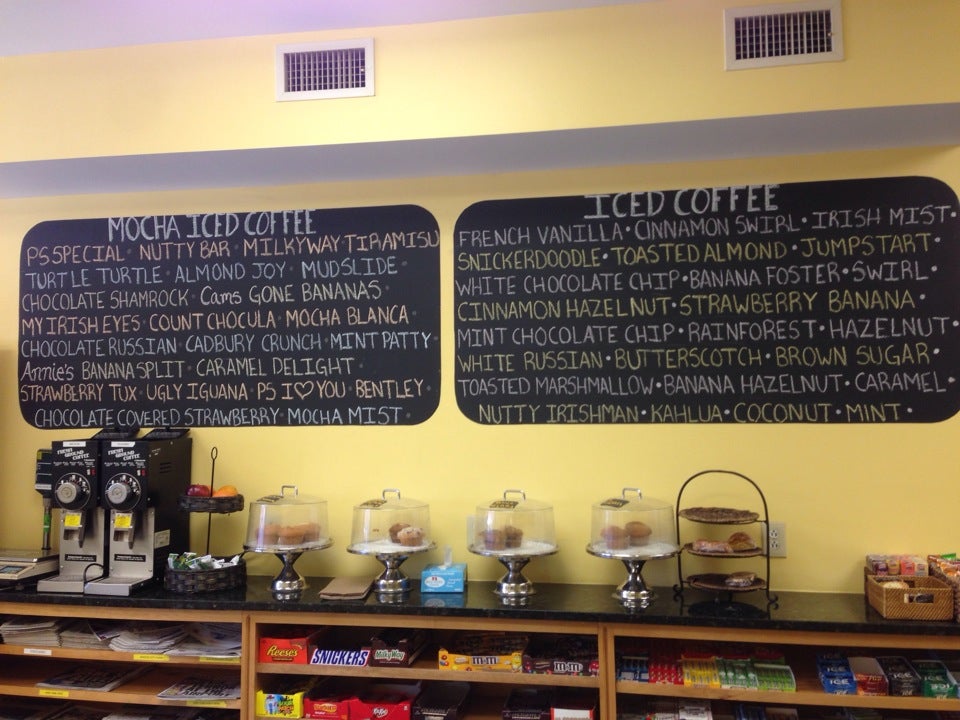 MOCHA ICED COFFEE
PS SPECIAL · NUTTY BAR · MILKYWAY · TIRAMISU
TURTLE TURTLE · ALMOND JOY · MUDSLIDE ·
CHOCOLATE SHAMROCK · Cams GONE BANANAS
MY IRISH EYES · COUNT CHOCULA · MOCHA BLANCA ·
CHOCOLATE RUSSIAN · CADBURY CRUNCH · MINT PATTY
Annie's BANANA SPLIT · CARAMEL DELIGHT ·
STRAWBERRY TUX · UGLY IGUANA · PS I♡YOU · BENTLEY ·
CHOCOLATE COVERED STRAWBERRY · MOCHA MIST ·
ICED COFFEE
FRENCH VANILLA · CINNAMON SWIRL · IRISH MIST ·
SNICKERDOODLE · TOASTED ALMOND · JUMPSTART ·
WHITE CHOCOLATE CHIP · BANANA FOSTER · SWIRL ·
CINNAMON HAZELNUT · STRAWBERRY BANANA ·
MINT CHOCOLATE CHIP · RAINFOREST · HAZELNUT ·
WHITE RUSSIAN · BUTTERSCOTCH · BROWN SUGAR ·
TOASTED MARSHMALLOW · BANANA HAZELNUT · CARAMEL ·
NUTTY IRISHMAN · KAHLUA · COCONUT · MINT ·
FRESH GROUND COFFEE
FRESH GROUND COFFEE
Reese's
SNICKERS
MilkyWay
m&m's
m&m's
ICE